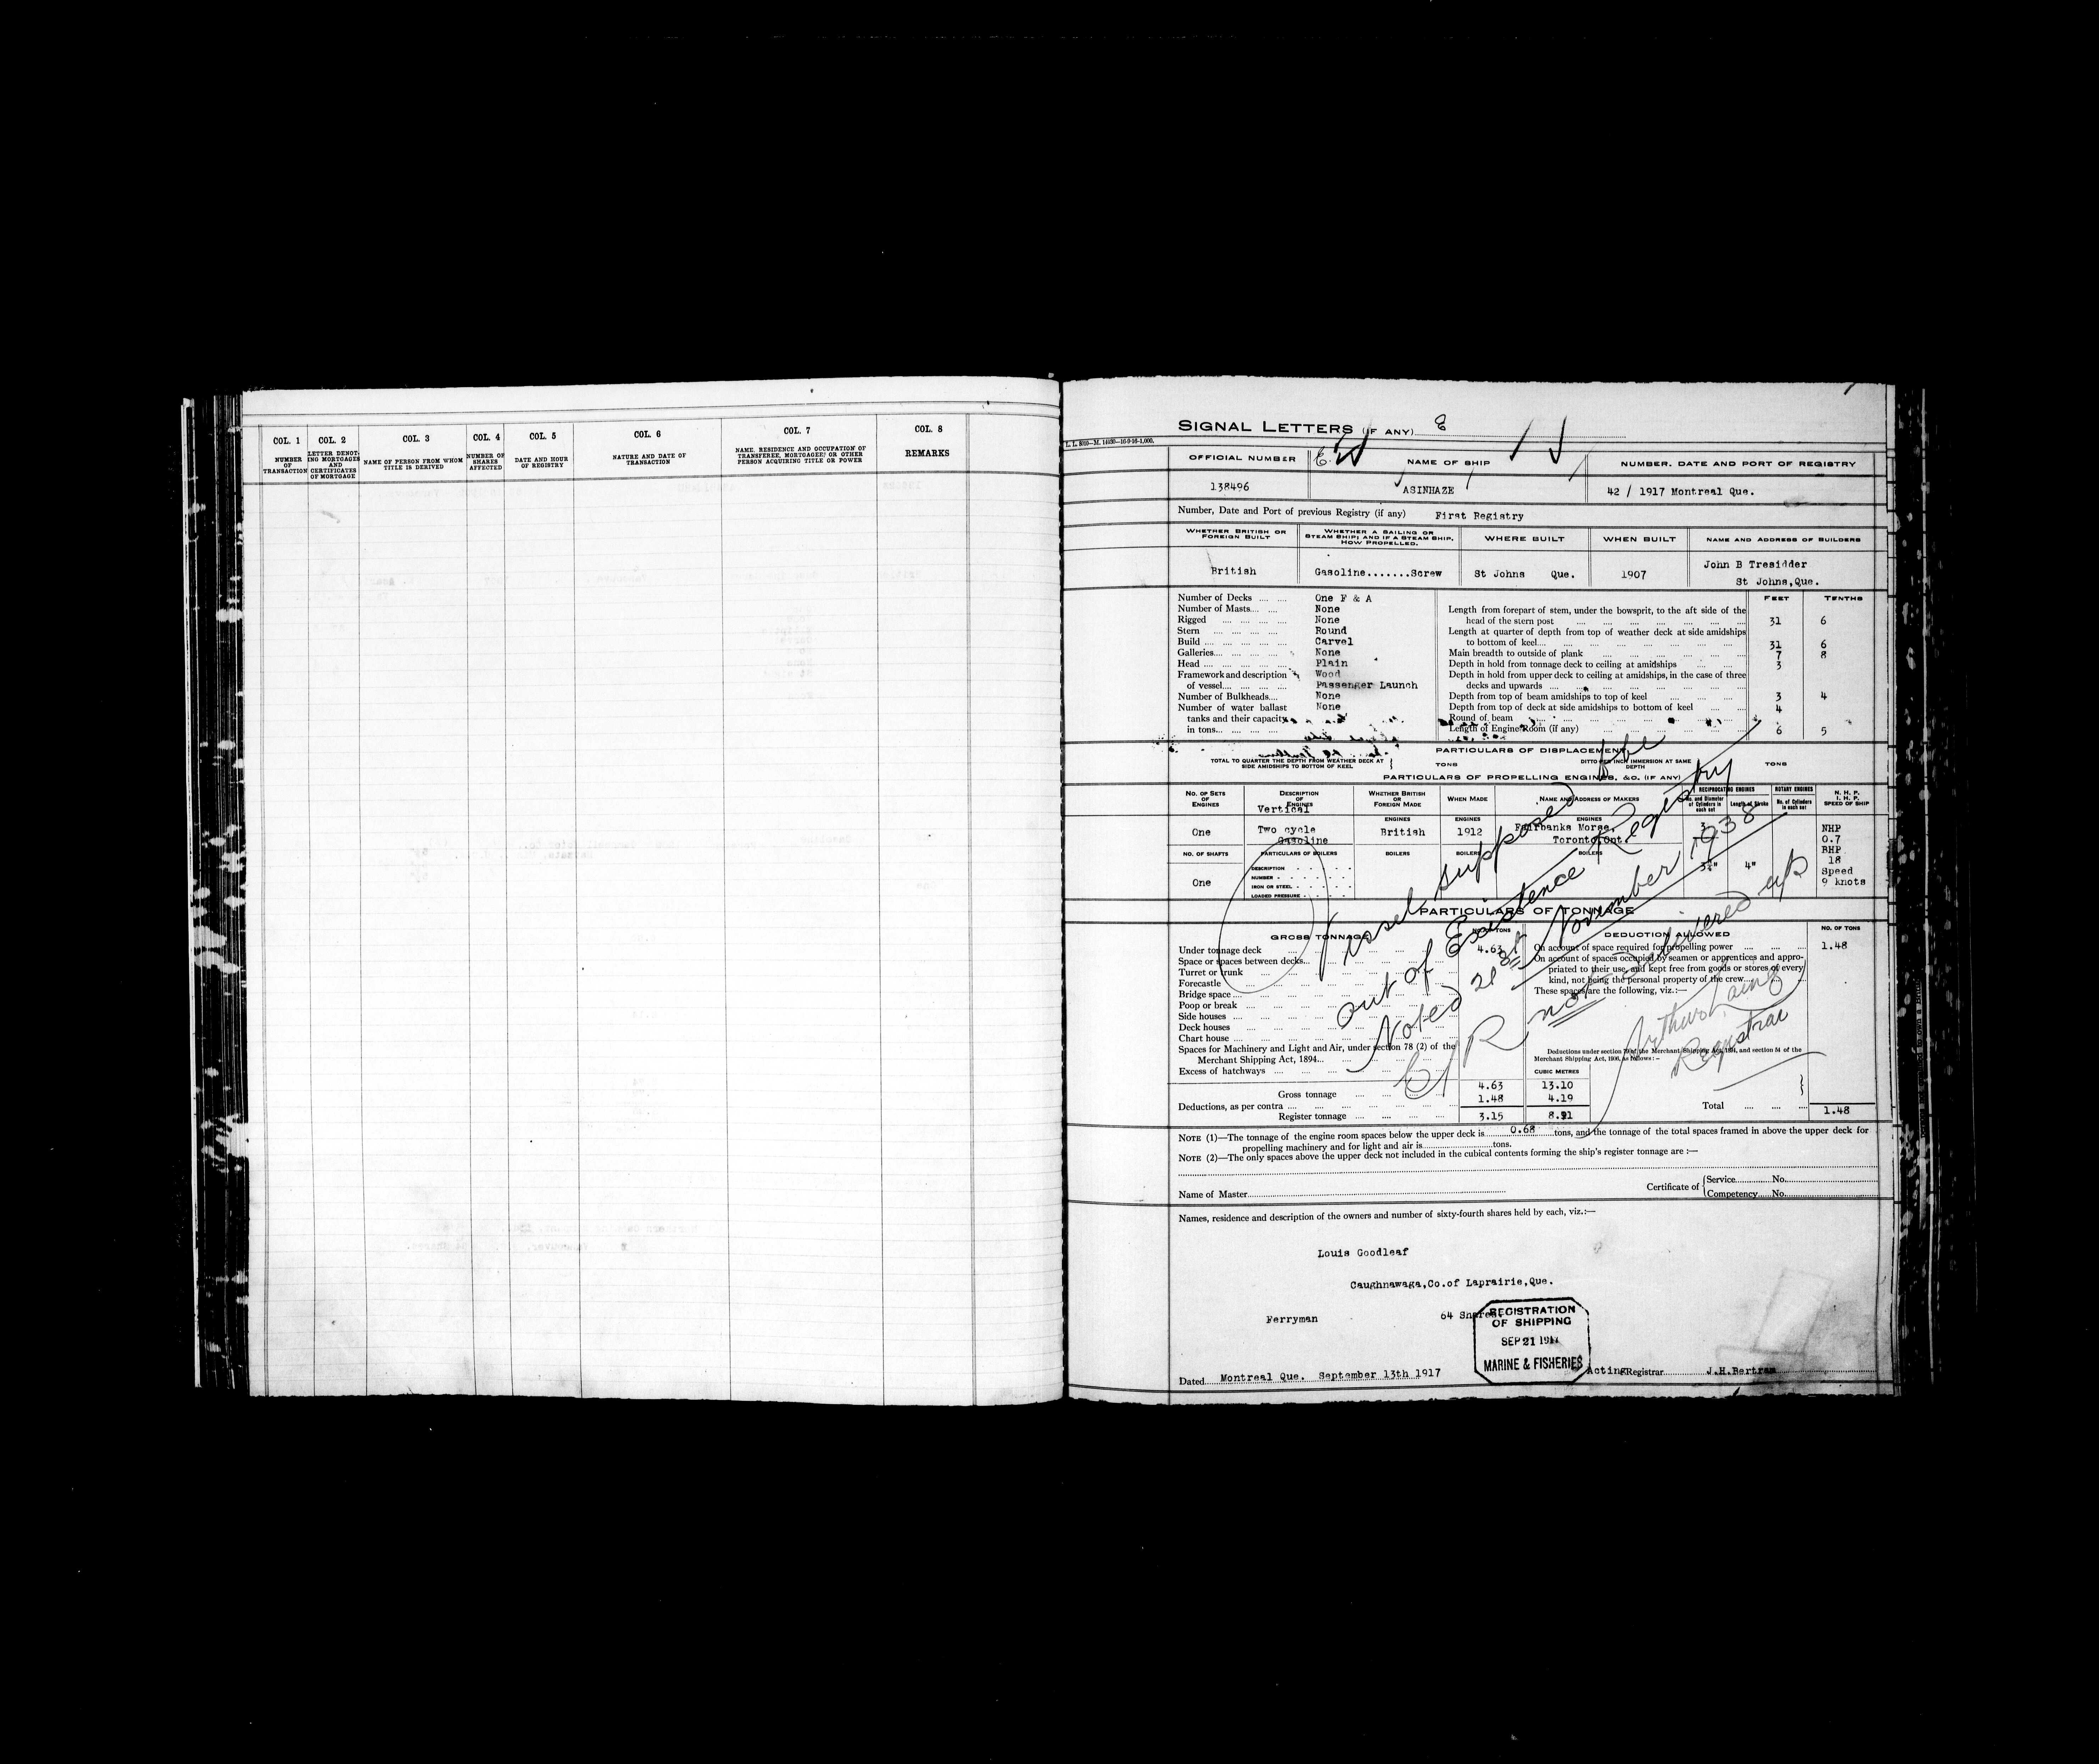 COL. 1
NUMBER
OF
TRANSACTION
COL. 2
LETTER DENOT-
ING MORTGAGES
AND
CERTIFICATES
OF MORTGAGE
COL. 3
NAME OF PERSON FROM WHOM
TITLE IS DERIVED
COL. 4
NUMBER OF
SHARES
AFFECTED
COL. 5
DATE AND HOUR
OF REGISTRY
COL. 6
NATURE AND DATE OF
TRANSACTION
COL. 7
NAME, RESIDENCE AND OCCUPATION OF
TRANSFEREE, MORTGAGEE, OR OTHER
PERSON ACQUIRING TITLE OR POWER
COL. 8
REMARKS
SIGNAL LETTERS (IF ANY)
OFFICIAL NUMBER
NAME OF SHIP
NUMBER, DATE AND PORT OF REGISTRY
138496
ASINHAZE
42 / 1917 Montreal Que.
Number, Date and Port of previous Registry (if any) First Registry
WHETHER BRITISH OR
FOREIGN BUILT
WHETHER A SAILING OR
STEAM SHIP; AND IF A STEAM SHIP,
HOW PROPELLED.
WHERE BUILT
WHEN BUILT
NAME AND ADDRESS OF BUILDERS
British
Gasoline.......Screw
St Johns Que.
1907
John B Tresidder
St Johns,Que.
Number of Decks One F & A
Number of Masts None
Rigged None
Stern Round
Build Carvel
Galleries None
Head Plain
Framework and description Wood
of vessel Passenger Launch
Number of Bulkheads None
Number of water ballast None
tanks and their capacity
in tons
FEET TENTHS
Length from forepart of stem, under the bowsprit, to the aft side of the
head of the stern post 31 6
Length at quarter of depth from top of weather deck at side amidships
to bottom of keel 31 6
Main breadth to outside of plank 7 8
Depth in hold from tonnage deck to ceiling at amidships 3
Depth in hold from upper deck to ceiling at amidships, in the case of three
decks and upwards
Depth from top of beam amidships to top of keel 3 4
Depth from top of deck at side amidships to bottom of keel 4
Round of beam
Length of Engine Room (if any) 6 5
PARTICULARS OF DISPLACEMENT
TOTAL TO QUARTER THE DEPTH FROM WEATHER DECK AT
SIDE AMIDSHIPS TO BOTTOM OF KEEL
TONS
DITTO PER INCH IMMERSION AT SAME
DEPTH
TONS
PARTICULARS OF PROPELLING ENGINES, &C. (IF ANY)
NO. OF SETS
OF
ENGINES
DESCRIPTION
OF
ENGINES
WHETHER BRITISH
OR
FOREIGN MADE
WHEN MADE
NAME AND ADDRESS OF MAKERS
RECIPROCATING ENGINES
No. and Diameter
of Cylinders in
each set
Length of Stroke
ROTARY ENGINES
No. of Cylinders
in each set
N. H. P.
I. H. P.
SPEED OF SHIP
Vertical
ENGINES
ENGINES
ENGINES
One
Two cycle
Gasoline
British
1912
Fairbanks Morse,
Toronto,Ont.
NO. OF SHAFTS
PARTICULARS OF BOILERS
BOILERS
BOILERS
BOILERS
One
DESCRIPTION
NUMBER
IRON OR STEEL
LOADED PRESSURE
4"
NHP
0.7
BHP
18
Speed
9 knots
PARTICULARS OF TONNAGE
GROSS TONNAGE
NO. OF TONS
Under tonnage deck 4.63
Space or spaces between decks
Turret or trunk
Forecastle
Bridge space
Poop or break
Side houses
Deck houses
Chart house
Spaces for Machinery and Light and Air, under section 78 (2) of the
Merchant Shipping Act, 1894
Excess of hatchways
DEDUCTION ALLOWED
NO. OF TONS
On account of space required for propelling power 1.48
On account of spaces occupied by seamen or apprentices and appro-
priated to their use, and kept free from goods or stores of every
kind, not being the personal property of the crew
These spaces are the following, viz.:—
Deductions under section 79 of the Merchant Shipping Act, 1894, and section 54 of the
Merchant Shipping Act, 1906, as follows:—
CUBIC METRES
Gross tonnage 4.63 13.10
Deductions, as per contra 1.48 4.19
Register tonnage 3.15 8.91
Total 1.48
Vessel supposed to be
out of Existence Registry
Noted 21st November 1938
C/R not delivered up
Arthur Laing
Registrar
NOTE (1)—The tonnage of the engine room spaces below the upper deck is 0.68 tons, and the tonnage of the total spaces framed in above the upper deck for
propelling machinery and for light and air is tons.
NOTE (2)—The only spaces above the upper deck not included in the cubical contents forming the ship's register tonnage are :—
Name of Master
Certificate of
Service No.
Competency No.
Names, residence and description of the owners and number of sixty-fourth shares held by each, viz.:—
Louis Goodleaf
Caughnawaga,Co.of Laprairie,Que.
Ferryman 64 Shares.
REGISTRATION
OF SHIPPING
SEP 21 1917
MARINE & FISHERIES
Dated Montreal Que. September 13th 1917
Acting Registrar J.H.Bertram